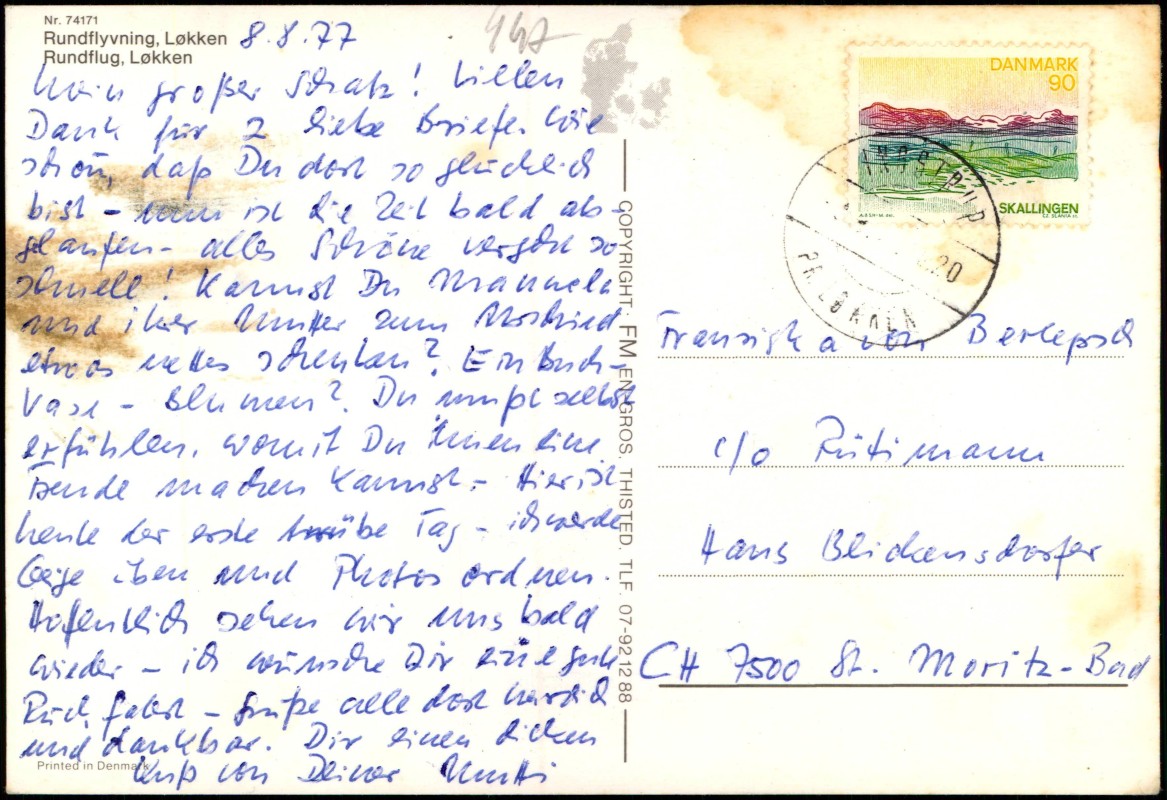 Nr. 74171
Rundflyvning, Løkken
Rundflug, Løkken
8.8.77
447
Mein großer Schatz! Vielen
Dank für 2 liebe Briefe. Wie
schön, daß Du dort so glücklich
bist – nun ist die Zeit bald ab-
gelaufen – alles Schöne vergeht so
schnell! Kannst Du Manuela
und ihrer Mutter zum Abschied
etwas nettes schenken? Ein Buch –
Vase – Blumen? Du mußt selbst
erfühlen, womit Du Ihnen eine
Freude machen kannst. – Hier ist
heute der erste trübe Tag – ich werde
Geige üben und Photos ordnen.
Hoffentlich sehen wir uns bald
wieder – ich wünsche Dir eine gute
Rückfahrt – Grüße alle dort herzlich
und dankbar. Dir einen dicken
Kuß von Deiner Mutti
Printed in Denmark
COPYRIGHT. FM ENGROS. THISTED. TLF. 07-92 12 88
DANMARK
90
SKALLINGEN
CZ. SLANIA sc.
INGSTRUP
PR. LØKKEN
Franziska von Berlepsch
c/o Rütimann
Hans Blickensdorfer
CH 7500 St. Moritz-Bad